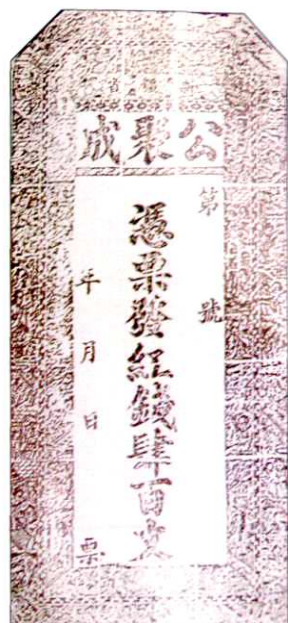 新疆省
公聚成
第 號
憑票發紅錢肆百文
年 月 日 票